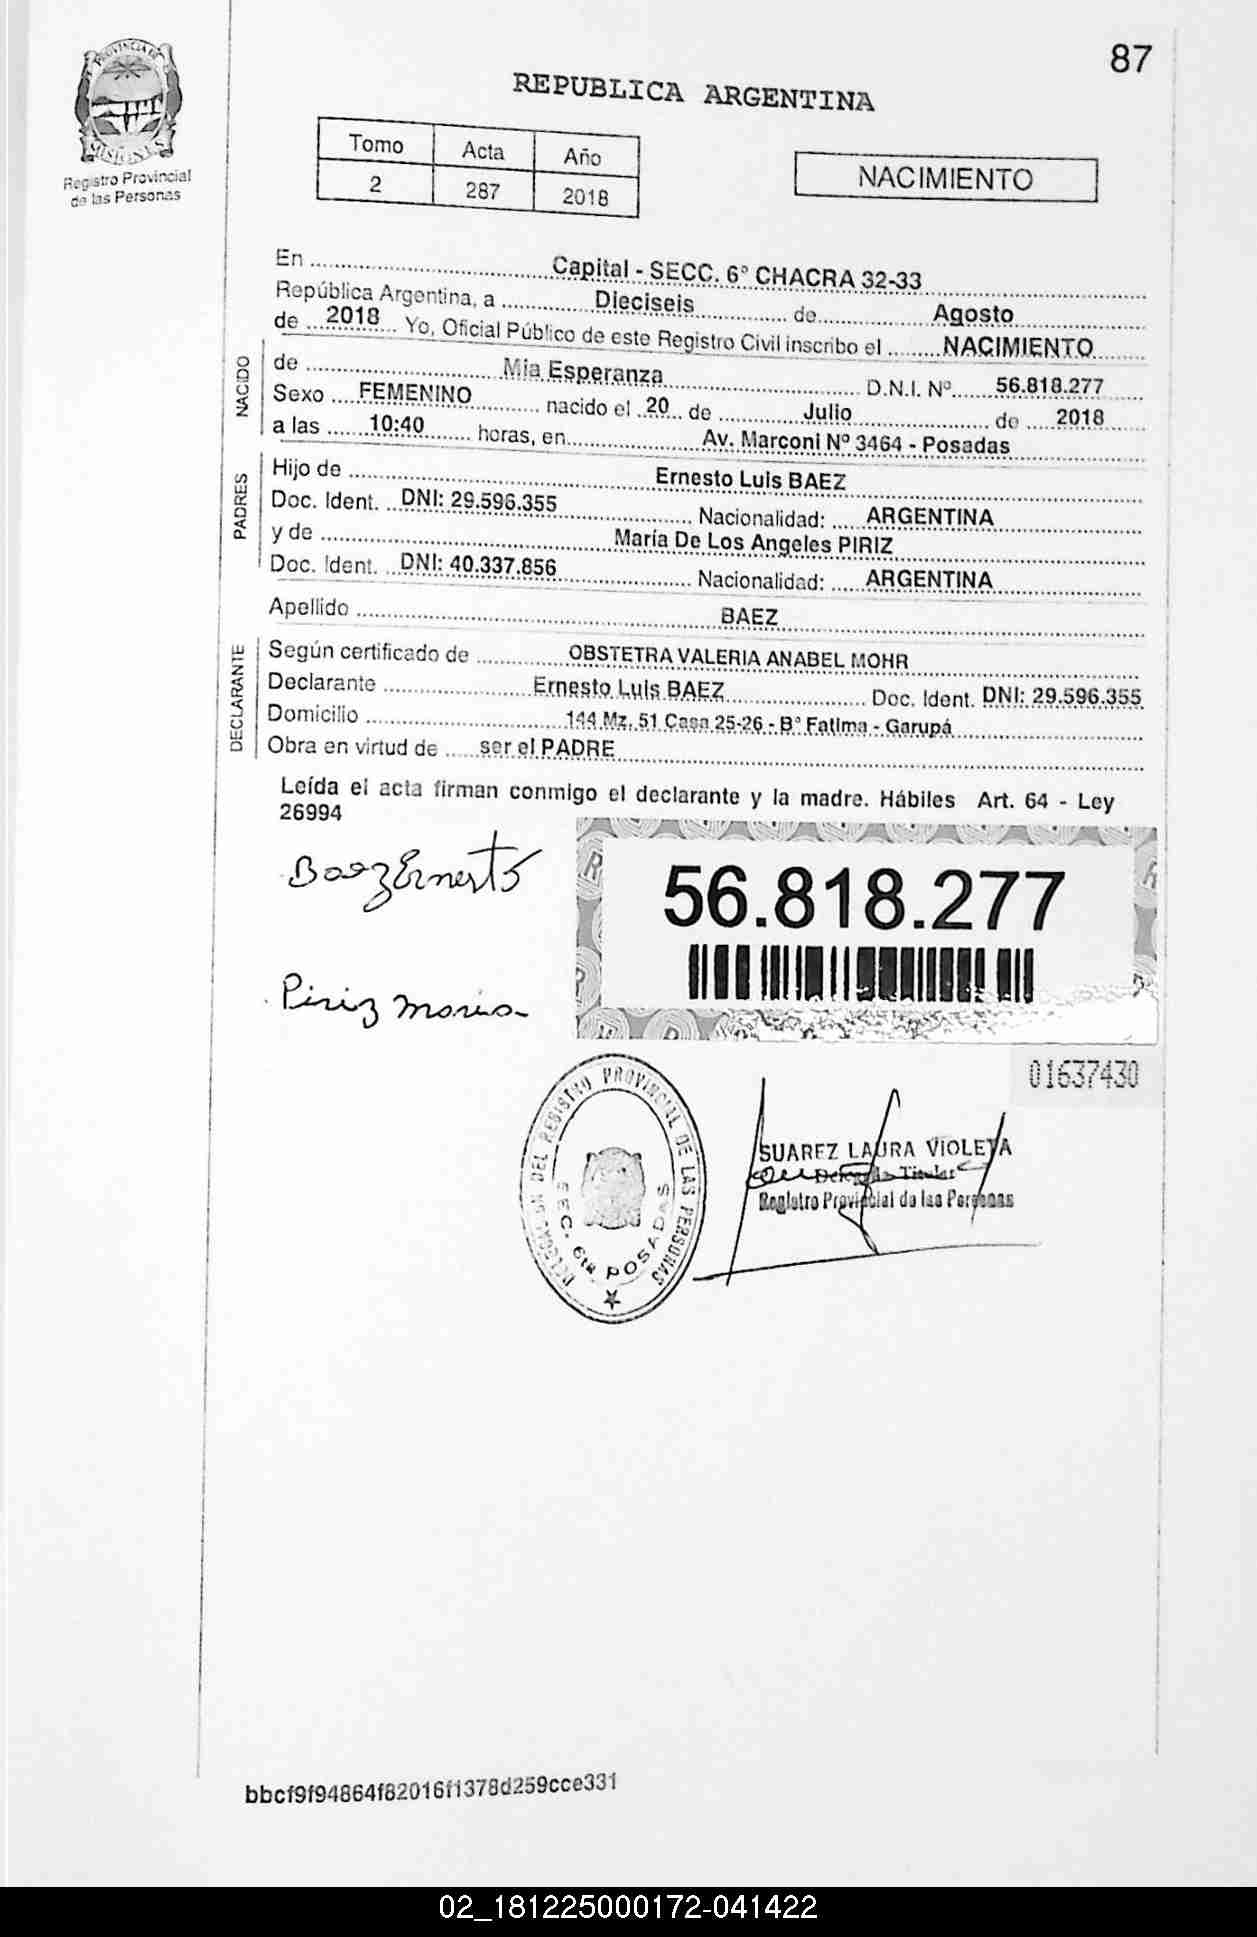 87
PROVINCIA DE
MISIONES
Registro Provincial
de las Personas
REPUBLICA ARGENTINA
Tomo Acta Año
2 287 2018
NACIMIENTO
En Capital - SECC. 6° CHACRA 32-33
República Argentina, a Dieciseis de Agosto
de 2018 Yo, Oficial Público de este Registro Civil inscribo el NACIMIENTO
NACIDO
de Mia Esperanza D.N.I. Nº 56.818.277
Sexo FEMENINO nacido el 20 de Julio de 2018
a las 10:40 horas, en Av. Marconi Nº 3464 - Posadas
PADRES
Hijo de Ernesto Luis BAEZ
Doc. Ident. DNI: 29.596.355 Nacionalidad: ARGENTINA
y de María De Los Angeles PIRIZ
Doc. Ident. DNI: 40.337.856 Nacionalidad: ARGENTINA
Apellido BAEZ
DECLARANTE
Según certificado de OBSTETRA VALERIA ANABEL MOHR
Declarante Ernesto Luis BAEZ Doc. Ident. DNI: 29.596.355
Domicilio 144 Mz. 51 Casa 25-26 - B° Fatima - Garupá
Obra en virtud de ser el PADRE
Leída el acta firman conmigo el declarante y la madre. Hábiles Art. 64 - Ley
26994
Baez Ernesto
56.818.277
Piriz Maria
01637430
DELEGACION DEL REGISTRO PROVINCIAL DE LAS PERSONAS
SEC. 6ta POSADAS
SUAREZ LAURA VIOLETA
Delegada Titular
Registro Provincial de las Personas
bbcf9f94864f82016f1378d259cce331
02_181225000172-041422